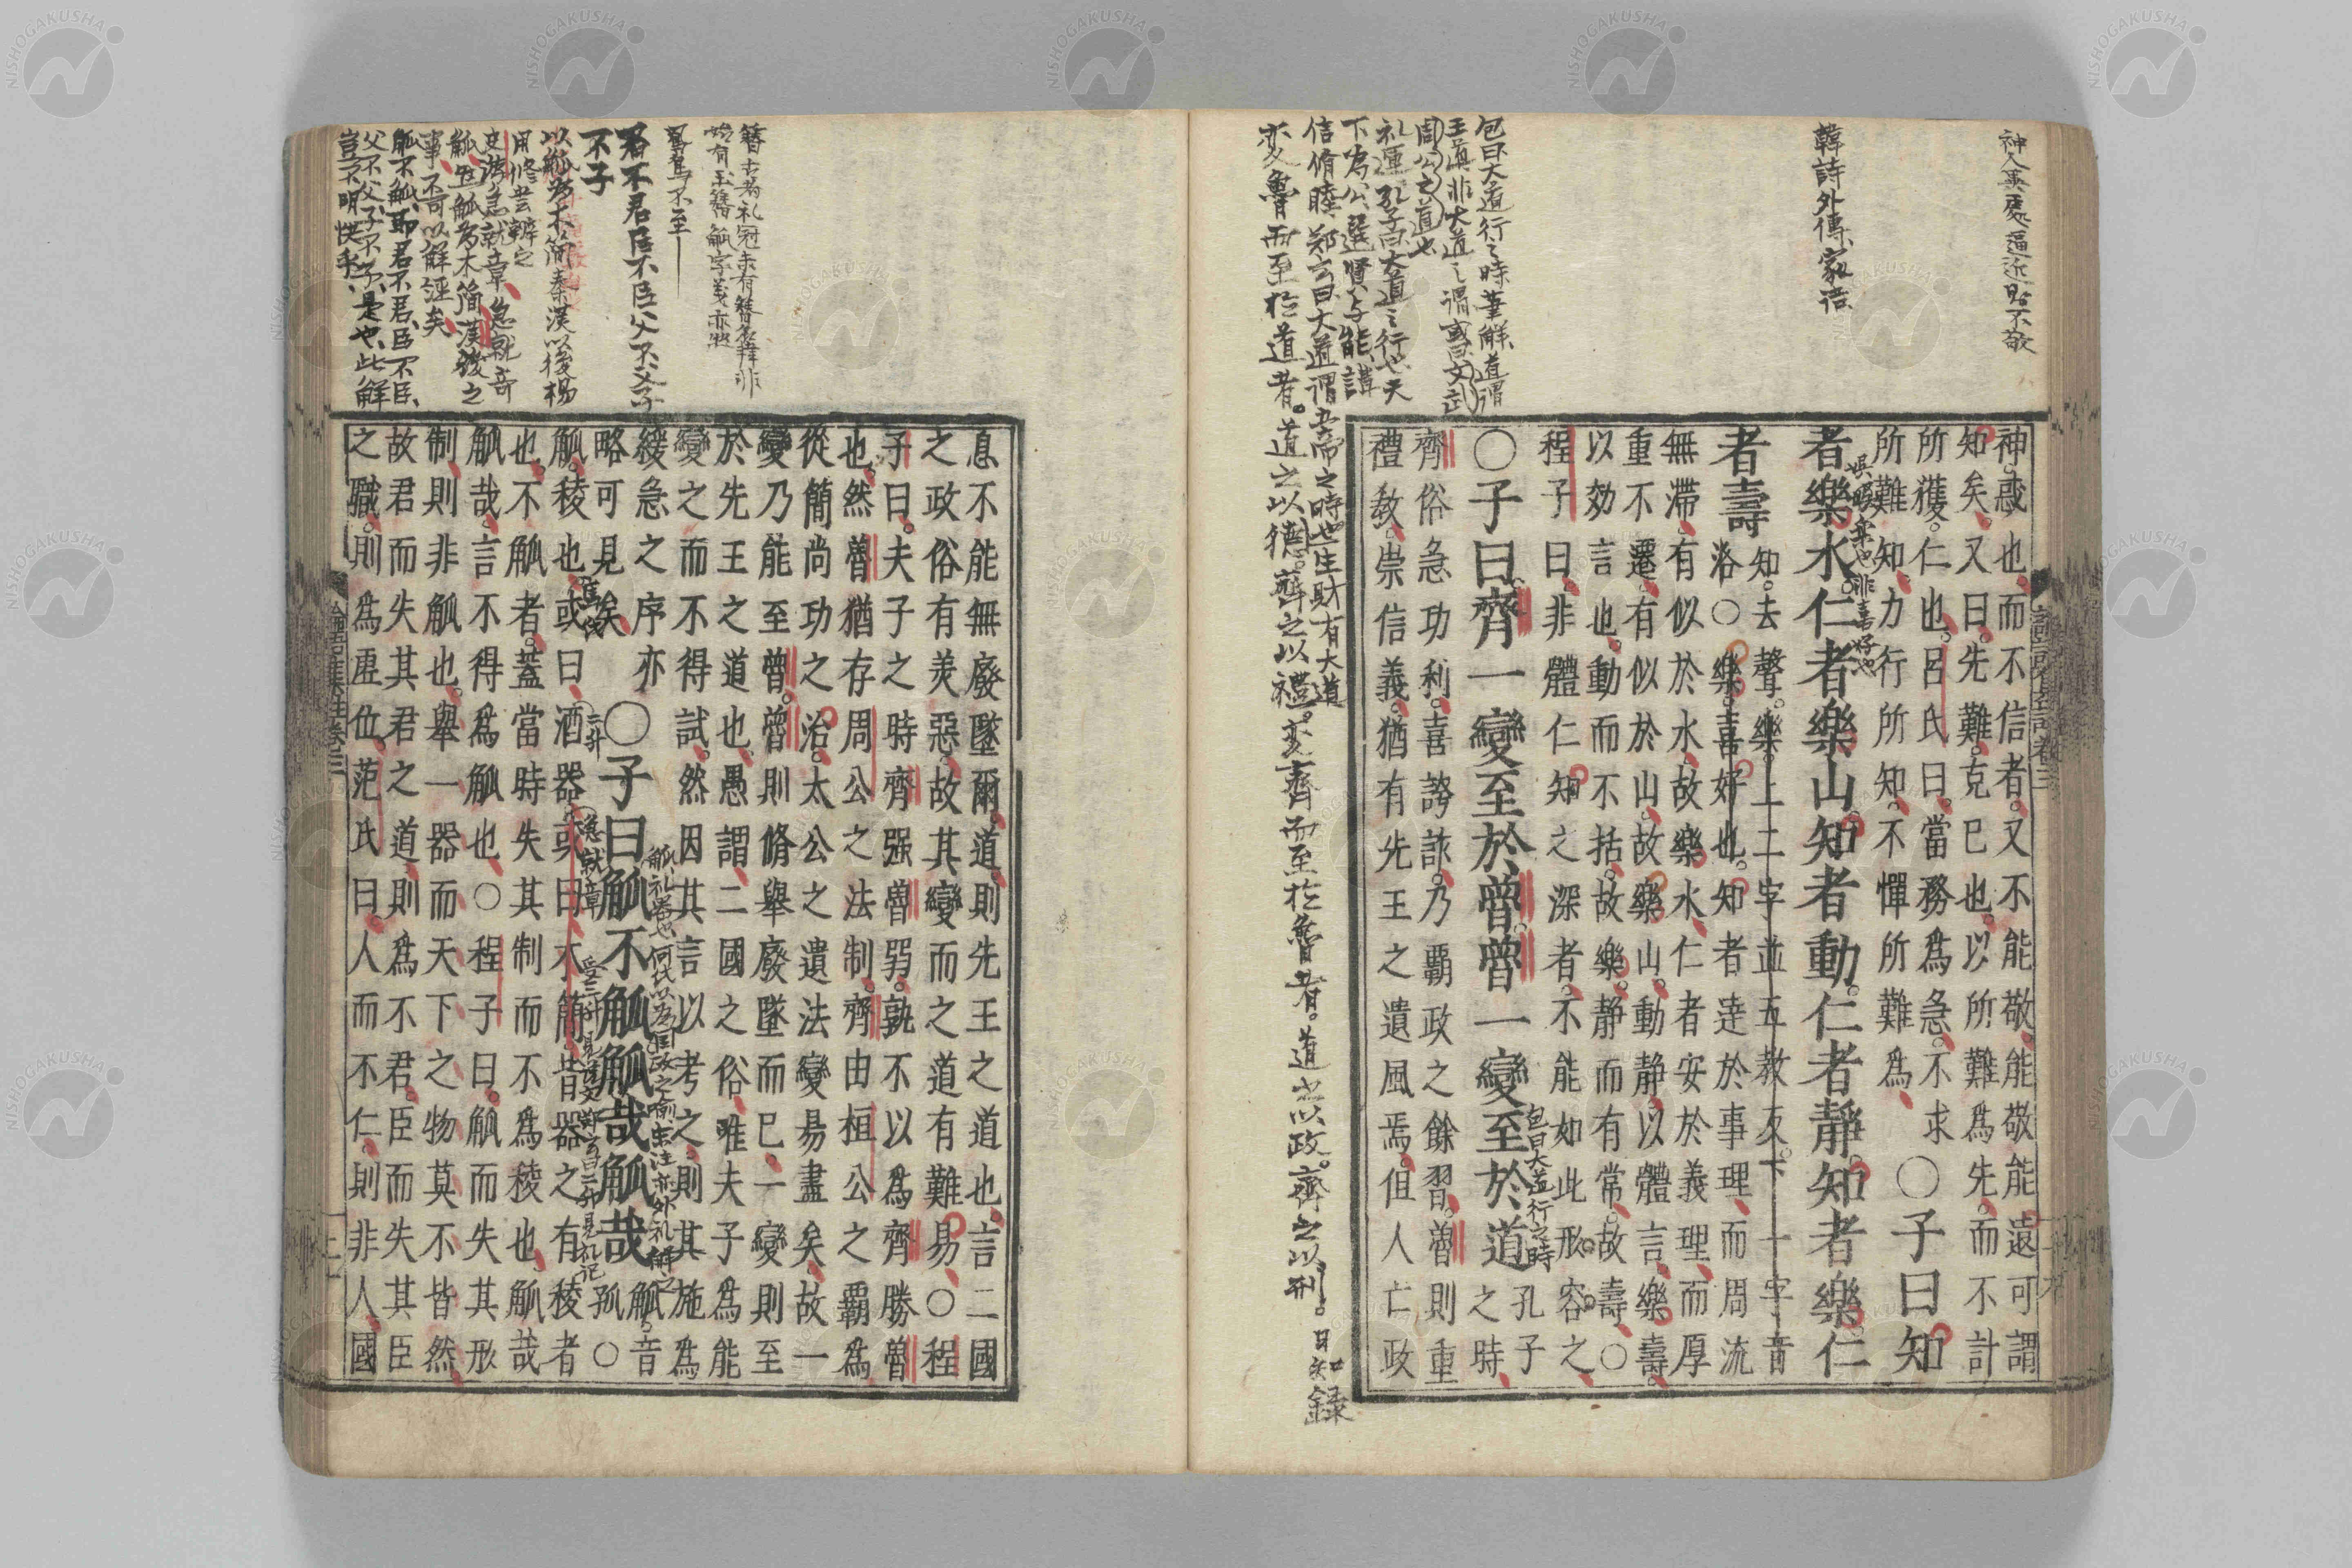 神人異處逼近則不敬
韓詩外傳家語
神惑也而不信者又不能敬能敬能遠可謂
知矣又曰先難克己也以所難爲先而不計
所獲仁也呂氏曰當務爲急不求
所難知力行所知不憚所難爲
〇子曰知
者樂水仁者樂山知者動仁者靜知者樂仁
者壽
知去聲樂上二字並五教反下一字音
洛〇樂喜好也知者達於事理而周流
無滯有似於水故樂水仁者安於義理而厚
重不遷有似於山故樂山動靜以體言樂壽
以効言也動而不括故樂靜而有常故壽〇
程子曰非體仁知之深者不能如此形容之
〇子曰齊一變至於魯魯一變至於道
孔子
之時
齊俗急功利喜誇詐乃覇政之餘習魯則重
禮教崇信義猶有先王之遺風焉但人亡政
包曰大道行之時
包曰大道行之時筆解道謂
王道非大道之謂
周公之道也
礼運孔子曰大道之行也天
下為公選賢与能講
信脩睦鄭玄曰大道謂五帝之時也
變魯而至於道者道之以德齊之以禮變齊而至於魯者道之以政齊之以刑 日知録
息不能無廢墜爾道則先王之道也言二國
之政俗有美惡故其變而之道有難易〇程
子曰夫子之時齊强魯弱孰不以爲齊勝魯
也然魯猶存周公之法制齊由桓公之覇爲
從簡尚功之治太公之遺法變易盡矣故一
變乃能至魯魯則脩舉廢墜而已一變則至
於先王之道也愚謂二國之俗唯夫子爲能
變之而不得試然因其言以考之則其施爲
緩急之序亦
略可見矣
〇子曰觚不觚觚哉觚哉
觚音
孤〇
觚稜也或曰酒器或曰木簡皆器之有稜者
也不觚者蓋當時失其制而不爲稜也觚哉
觚哉言不得爲觚也〇程子曰觚而失其形
制則非觚也舉一器而天下之物莫不皆然
故君而失其君之道則爲不君臣而失其臣
之職則爲虛位范氏曰人而不仁則非人國
君不君臣不臣父不父子
不子
以觚為木簡秦漢以後楊
用修甞辨之
史游急就章急就奇
觚並觚為木簡漢後之
事不可以解經矣
觚不觚耶君不君臣不臣
父不父子不子是也此解
豈不明快乎